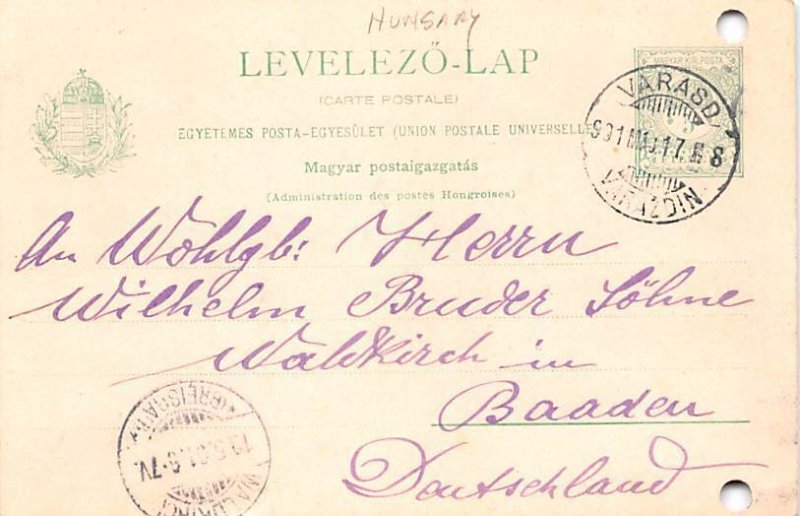 HUNGARY
LEVELEZŐ-LAP
(CARTE POSTALE)
MAGYAR KIR. POSTA
EGYETEMES POSTA-EGYESÜLET (UNION POSTALE UNIVERSELLE
Magyar postaigazgatás
(Administration des postes Hongroises)
VARASD
901 MAJ 17 8
An Wohlgb: Herrn
Wilhelm Bruder Söhne
Waldkirch in
Baaden
Deutschland